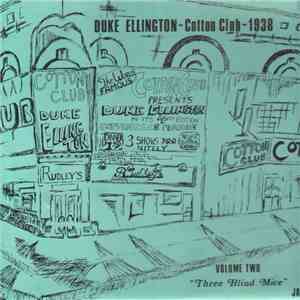 DUKE ELLINGTON-Cotton Club-1938
COTTON CLUB
DUKE
ELLING
TON
The World
FAMOUS
COTTON CLUB
PRESENTS
DUKE ELLINGTON
3 SHOWS
NITELY
UB
RUDLEY'S
COTTON
CLUB
COTTON
CLUB
VOLUME TWO
"Three Blind Mice"
JA